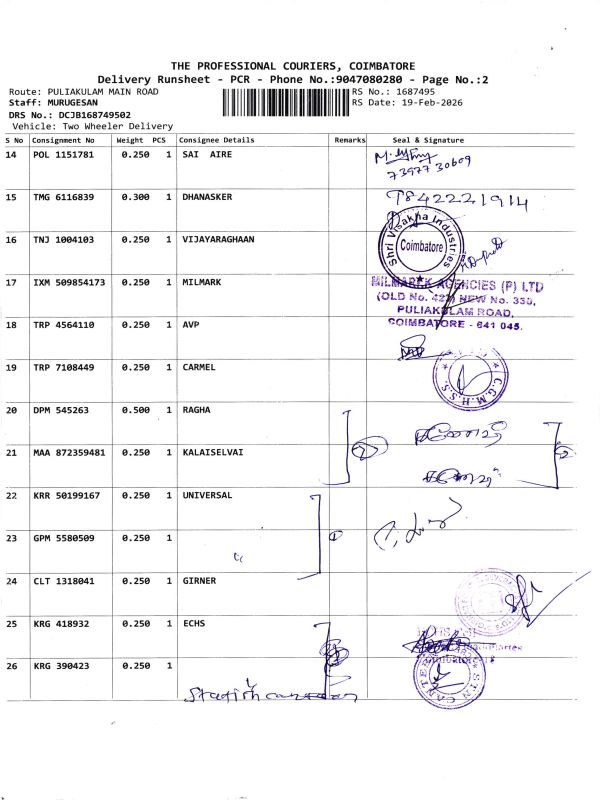 THE PROFESSIONAL COURIERS, COIMBATORE
Delivery Runsheet - PCR - Phone No.:9047080280 - Page No.:2
Route: PULIAKULAM MAIN ROAD
RS No.: 1687495
Staff: MURUGESAN
RS Date: 19-Feb-2026
DRS No.: DCJB168749502
Vehicle: Two Wheeler Delivery
S No Consignment No Weight PCS Consignee Details Remarks Seal & Signature
14 POL 1151781 0.250 1 SAI AIRE
73977 30609
15 TMG 6116839 0.300 1 DHANASKER
9842221914
16 TNJ 1004103 0.250 1 VIJAYARAGHAAN
Shri Visakha Industries
Coimbatore
17 IXM 509854173 0.250 1 MILMARK
MILMAREK AGENCIES (P) LTD
(OLD No. 427) NEW No. 330,
PULIAKULAM ROAD,
COIMBATORE - 641 045.
18 TRP 4564110 0.250 1 AVP
19 TRP 7108449 0.250 1 CARMEL
C.G.M.H.S.S.
20 DPM 545263 0.500 1 RAGHA
21 MAA 872359481 0.250 1 KALAISELVAI
22 KRR 50199167 0.250 1 UNIVERSAL
23 GPM 5580509 0.250 1
24 CLT 1318041 0.250 1 GIRNER
25 KRG 418932 0.250 1 ECHS
26 KRG 390423 0.250 1
Station canteen
STN CANTEEN